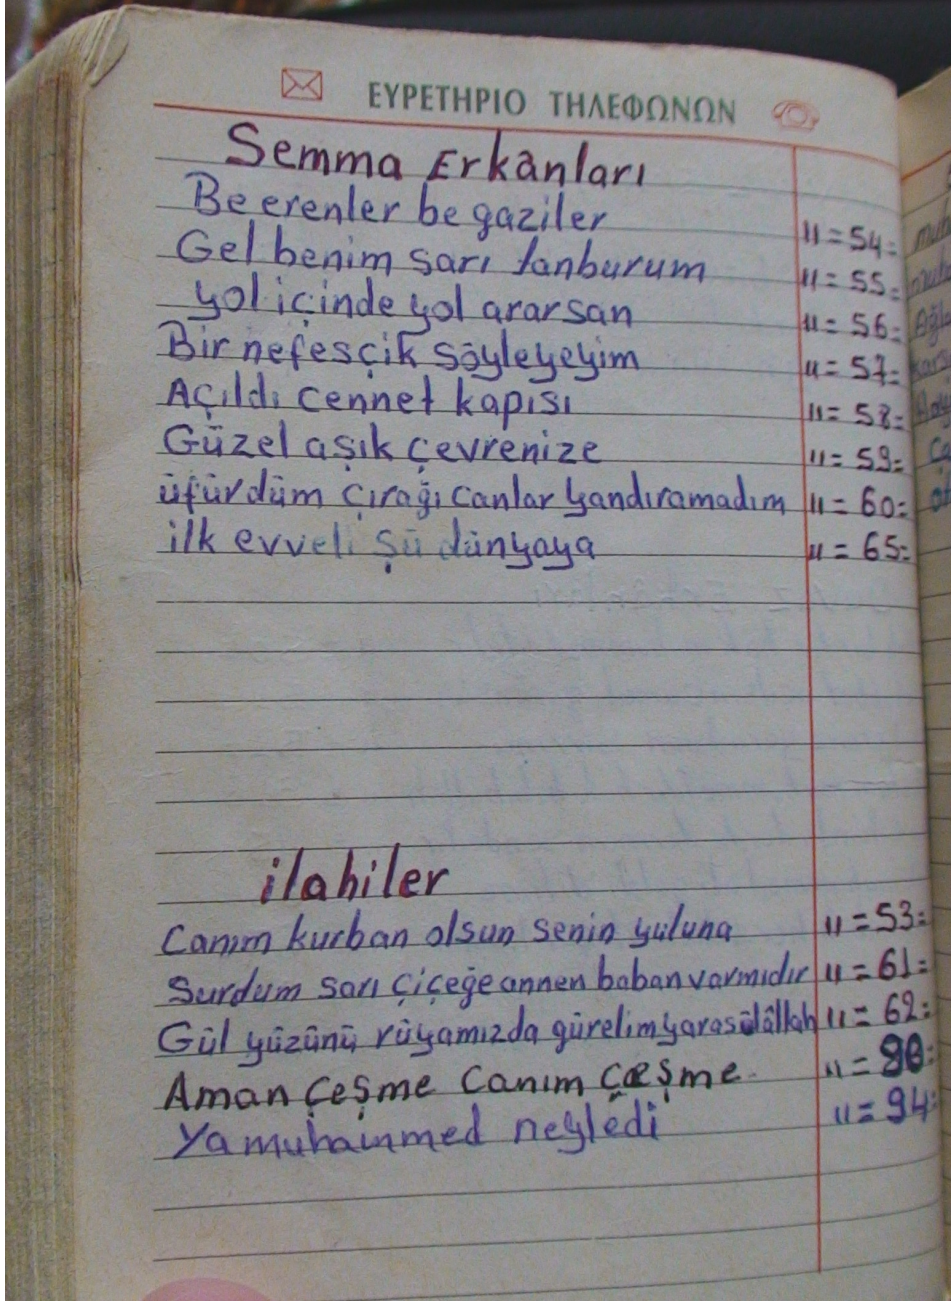 ΕΥΡΕΤΗΡΙΟ ΤΗΛΕΦΩΝΩΝ
Semma Erkânları
Be erenler be gaziler 11=54=
Gel benim sarı tanburum 11=55=
yol içinde yol ararsan 11=56=
Bir nefesçik söyleyeyim 11=57=
Açıldı cennet kapısı 11=58=
Güzel aşık çevrenize 11=59=
üfürdüm çırağı canlar yandıramadım 11=60=
ilk evveli şü dünyaya 11=65=
ilahiler
Canım kurban olsun senin yuluna 11=53=
Surdum sarı çiçeğe annen baban varmıdır 11=61=
Gül yüzünü rüyamızda gürelim yarasülâllah 11=62=
Aman çeşme canım çeşme 11=
Ya muhammed neyledi 11=94=